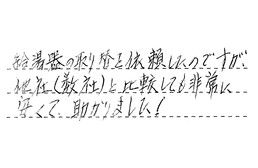 給湯器の取り替を依頼したのですが、
他社(数社)と比較しても非常に
安くて助かりました!